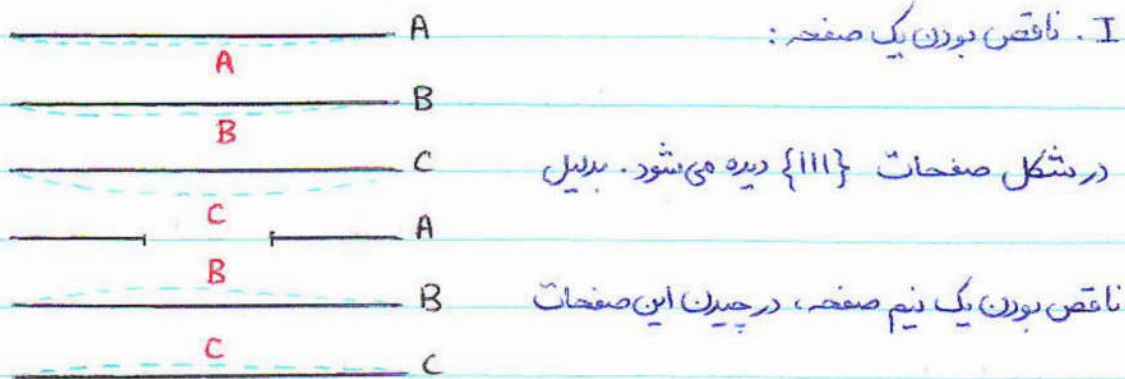 I. ناقص بودن یک صفحه:
در شکل صفحات {111} دیده می‌شود. بدلیل
ناقص بودن یک نیم صفحه، در چیدن این صفحات
A
A
B
B
C
C
A
B
B
C
C